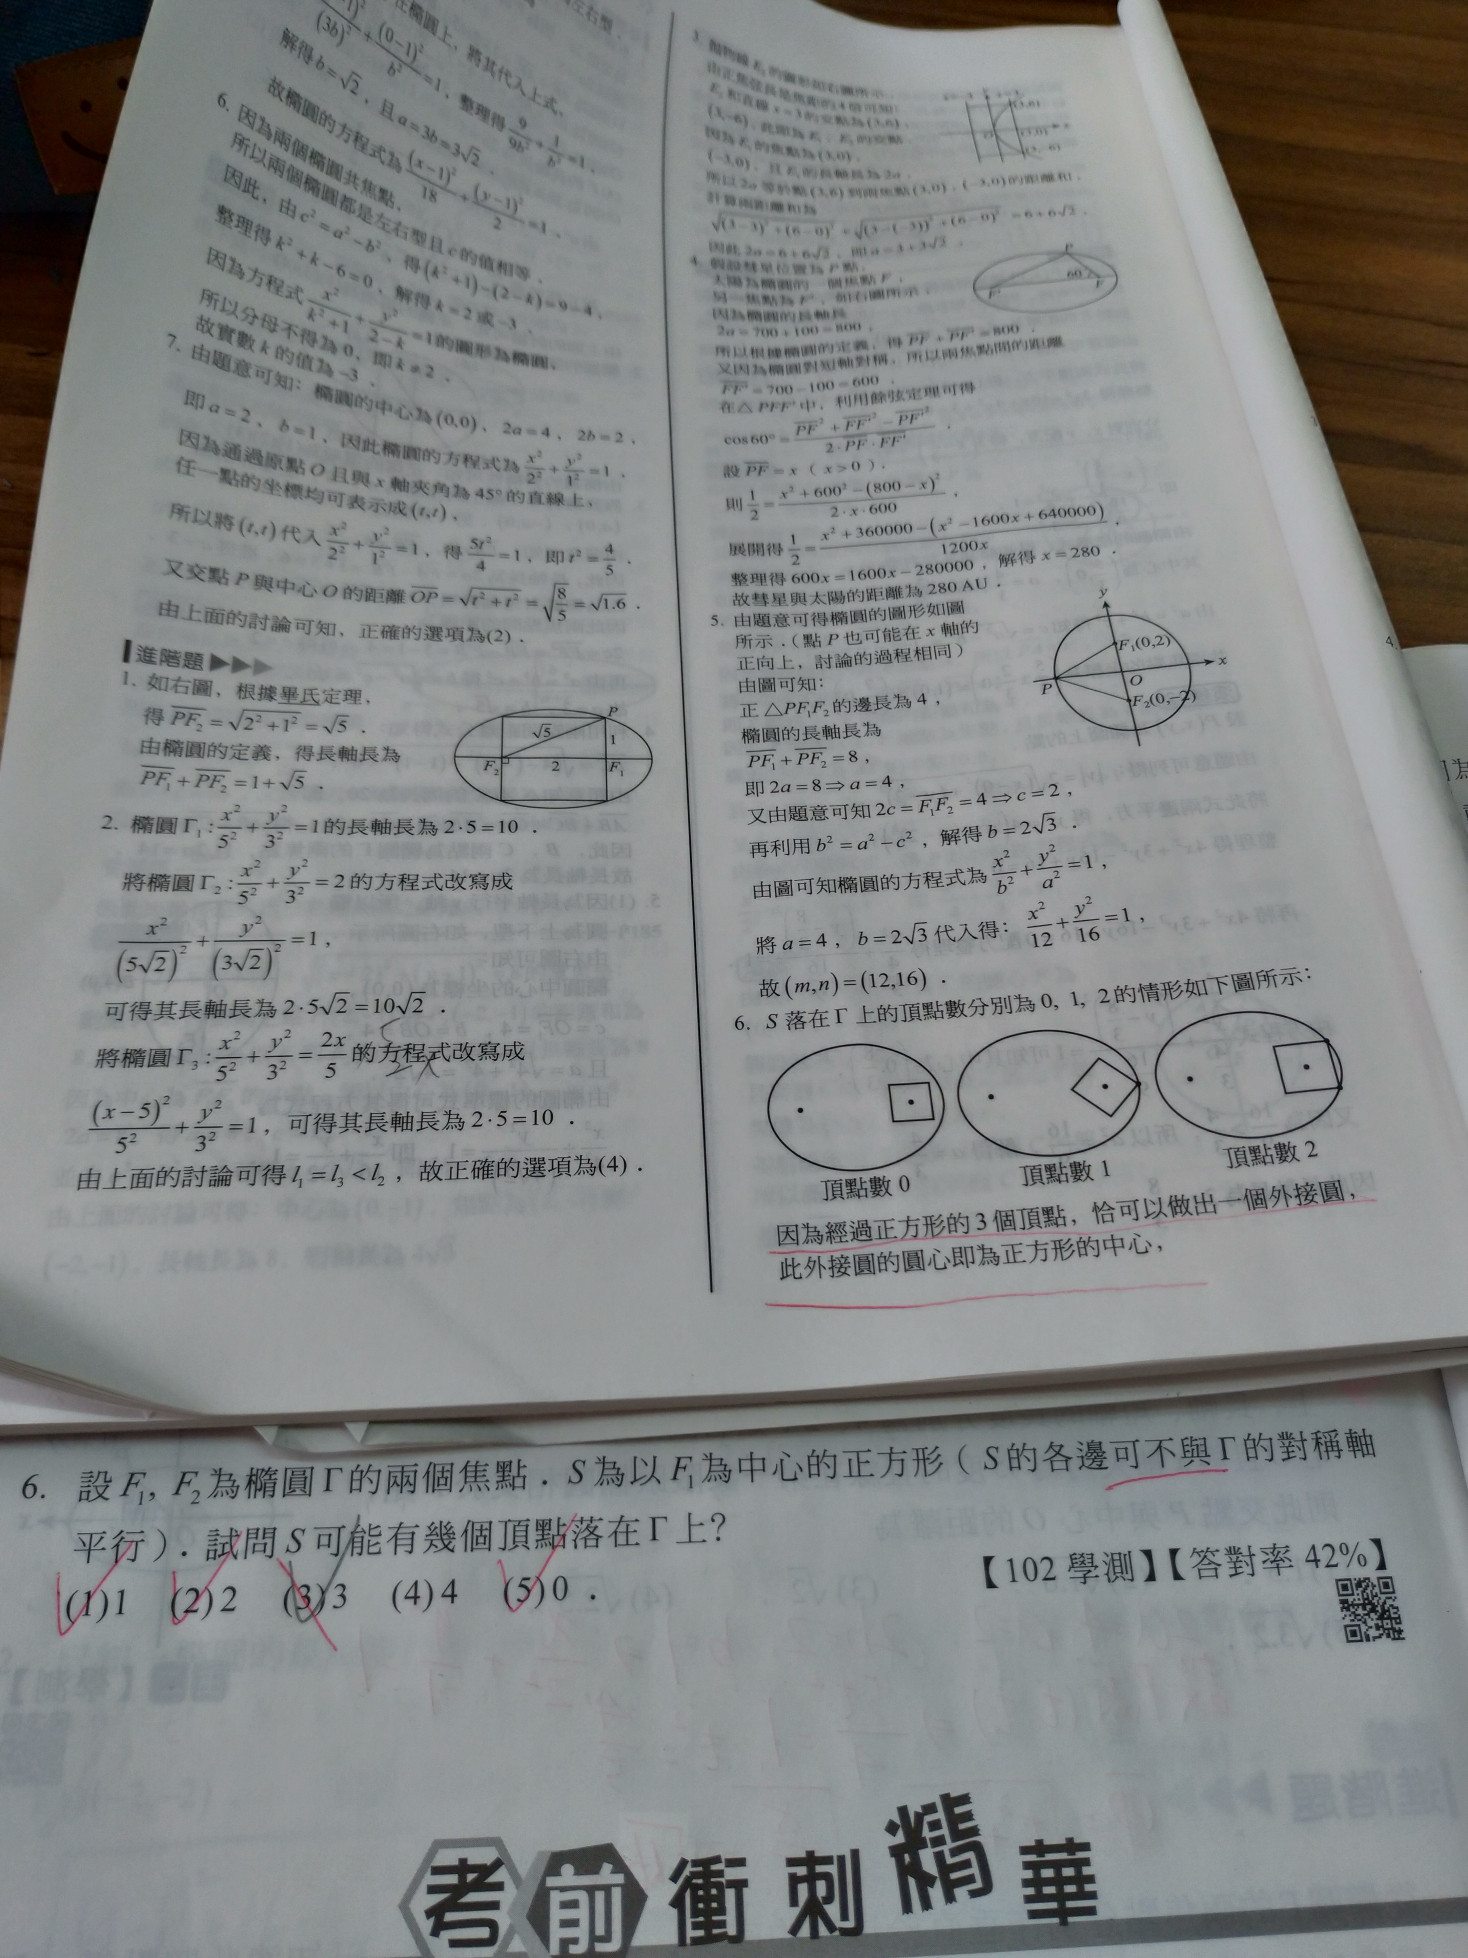 (3b)² + (0−1)²/b² = 1，整理得 9/9b² + 1/b² = 1，
解得 b=√2，且 a=3b=3√2．
故橢圓的方程式為 (x−1)²/18 + (y−1)²/2 = 1．
6. 因為兩個橢圓共焦點，
所以兩個橢圓都是左右型且 c 的值相等．
因此，由 c²=a²−b²，得 (k²+1)−(2−k)=9−4，
整理得 k²+k−6=0，解得 k=2 或 −3．
因為方程式 x²/(k²+1) + y²/(2−k) = 1 的圖形為橢圓，
所以分母不得為 0，即 k≠2．
故實數 k 的值為 −3．
7. 由題意可知：橢圓的中心為 (0,0)，2a=4，2b=2，
即 a=2，b=1，因此橢圓的方程式為 x²/2² + y²/1² = 1．
因為通過原點 O 且與 x 軸夾角為 45° 的直線上，
任一點的坐標均可表示成 (t,t)，
所以將 (t,t) 代入 x²/2² + y²/1² = 1，得 5t²/4 = 1，即 t² = 4/5．
又交點 P 與中心 O 的距離 OP = √(t²+t²) = √(8/5) = √1.6．
由上面的討論可知，正確的選項為(2)．
進階題
1. 如右圖，根據畢氏定理，
得 PF₂ = √(2²+1²) = √5．
由橢圓的定義，得長軸長為
PF₁ + PF₂ = 1+√5．
P
√5
1
F₂
2
F₁
2. 橢圓 Γ₁ : x²/5² + y²/3² = 1 的長軸長為 2·5=10．
將橢圓 Γ₂ : x²/5² + y²/3² = 2 的方程式改寫成
x²/(5√2)² + y²/(3√2)² = 1，
可得其長軸長為 2·5√2 = 10√2．
將橢圓 Γ₃ : x²/5² + y²/3² = 2x/5 的方程式改寫成
(x−5)²/5² + y²/3² = 1，可得其長軸長為 2·5=10．
由上面的討論可得 l₁ = l₃ < l₂，故正確的選項為(4)．
所以 2a 等於點 (3,6) 到兩焦點 (3,0)，(−3,0) 的距離和．
計算兩距離和為
√((3−3)²+(6−0)²) + √((3−(−3))²+(6−0)²) = 6+6√2．
因此 2a=6+6√2，即 a=3+3√2．
4. 假設彗星位置為 P 點，
太陽為橢圓的一個焦點 F，
另一焦點為 F′，如右圖所示．
P
60°
F′
F
因為橢圓的長軸長
2a=700+100=800，
所以根據橢圓的定義，得 PF + PF′ = 800．
又因為橢圓對短軸對稱，所以兩焦點間的距離
FF′ = 700−100=600．
在 △PFF′ 中，利用餘弦定理可得
cos60° = (PF² + FF′² − PF′²)/(2·PF·FF′)．
設 PF = x（x>0），
則 1/2 = (x²+600²−(800−x)²)/(2·x·600)，
展開得 1/2 = (x²+360000−(x²−1600x+640000))/1200x，
整理得 600x=1600x−280000，解得 x=280．
故彗星與太陽的距離為 280 AU．
5. 由題意可得橢圓的圖形如圖
所示．（點 P 也可能在 x 軸的
正向上，討論的過程相同）
由圖可知：
正 △PF₁F₂ 的邊長為 4，
橢圓的長軸長為
PF₁ + PF₂ = 8，
即 2a=8⇒a=4，
又由題意可知 2c = F₁F₂ = 4⇒c=2，
再利用 b²=a²−c²，解得 b=2√3．
由圖可知橢圓的方程式為 x²/b² + y²/a² = 1，
將 a=4，b=2√3 代入得：x²/12 + y²/16 = 1，
故 (m,n)=(12,16)．
y
F₁(0,2)
x
P
O
F₂(0,−2)
6. S 落在 Γ 上的頂點數分別為 0, 1, 2 的情形如下圖所示：
頂點數 0
頂點數 1
頂點數 2
因為經過正方形的 3 個頂點，恰可以做出一個外接圓，
此外接圓的圓心即為正方形的中心，
6. 設 F₁, F₂ 為橢圓 Γ 的兩個焦點．S 為以 F₁ 為中心的正方形（S 的各邊可不與 Γ 的對稱軸
平行）．試問 S 可能有幾個頂點落在 Γ 上？
【102 學測】【答對率 42%】
(1)1 (2)2 (3)3 (4)4 (5)0．
考前衝刺精華